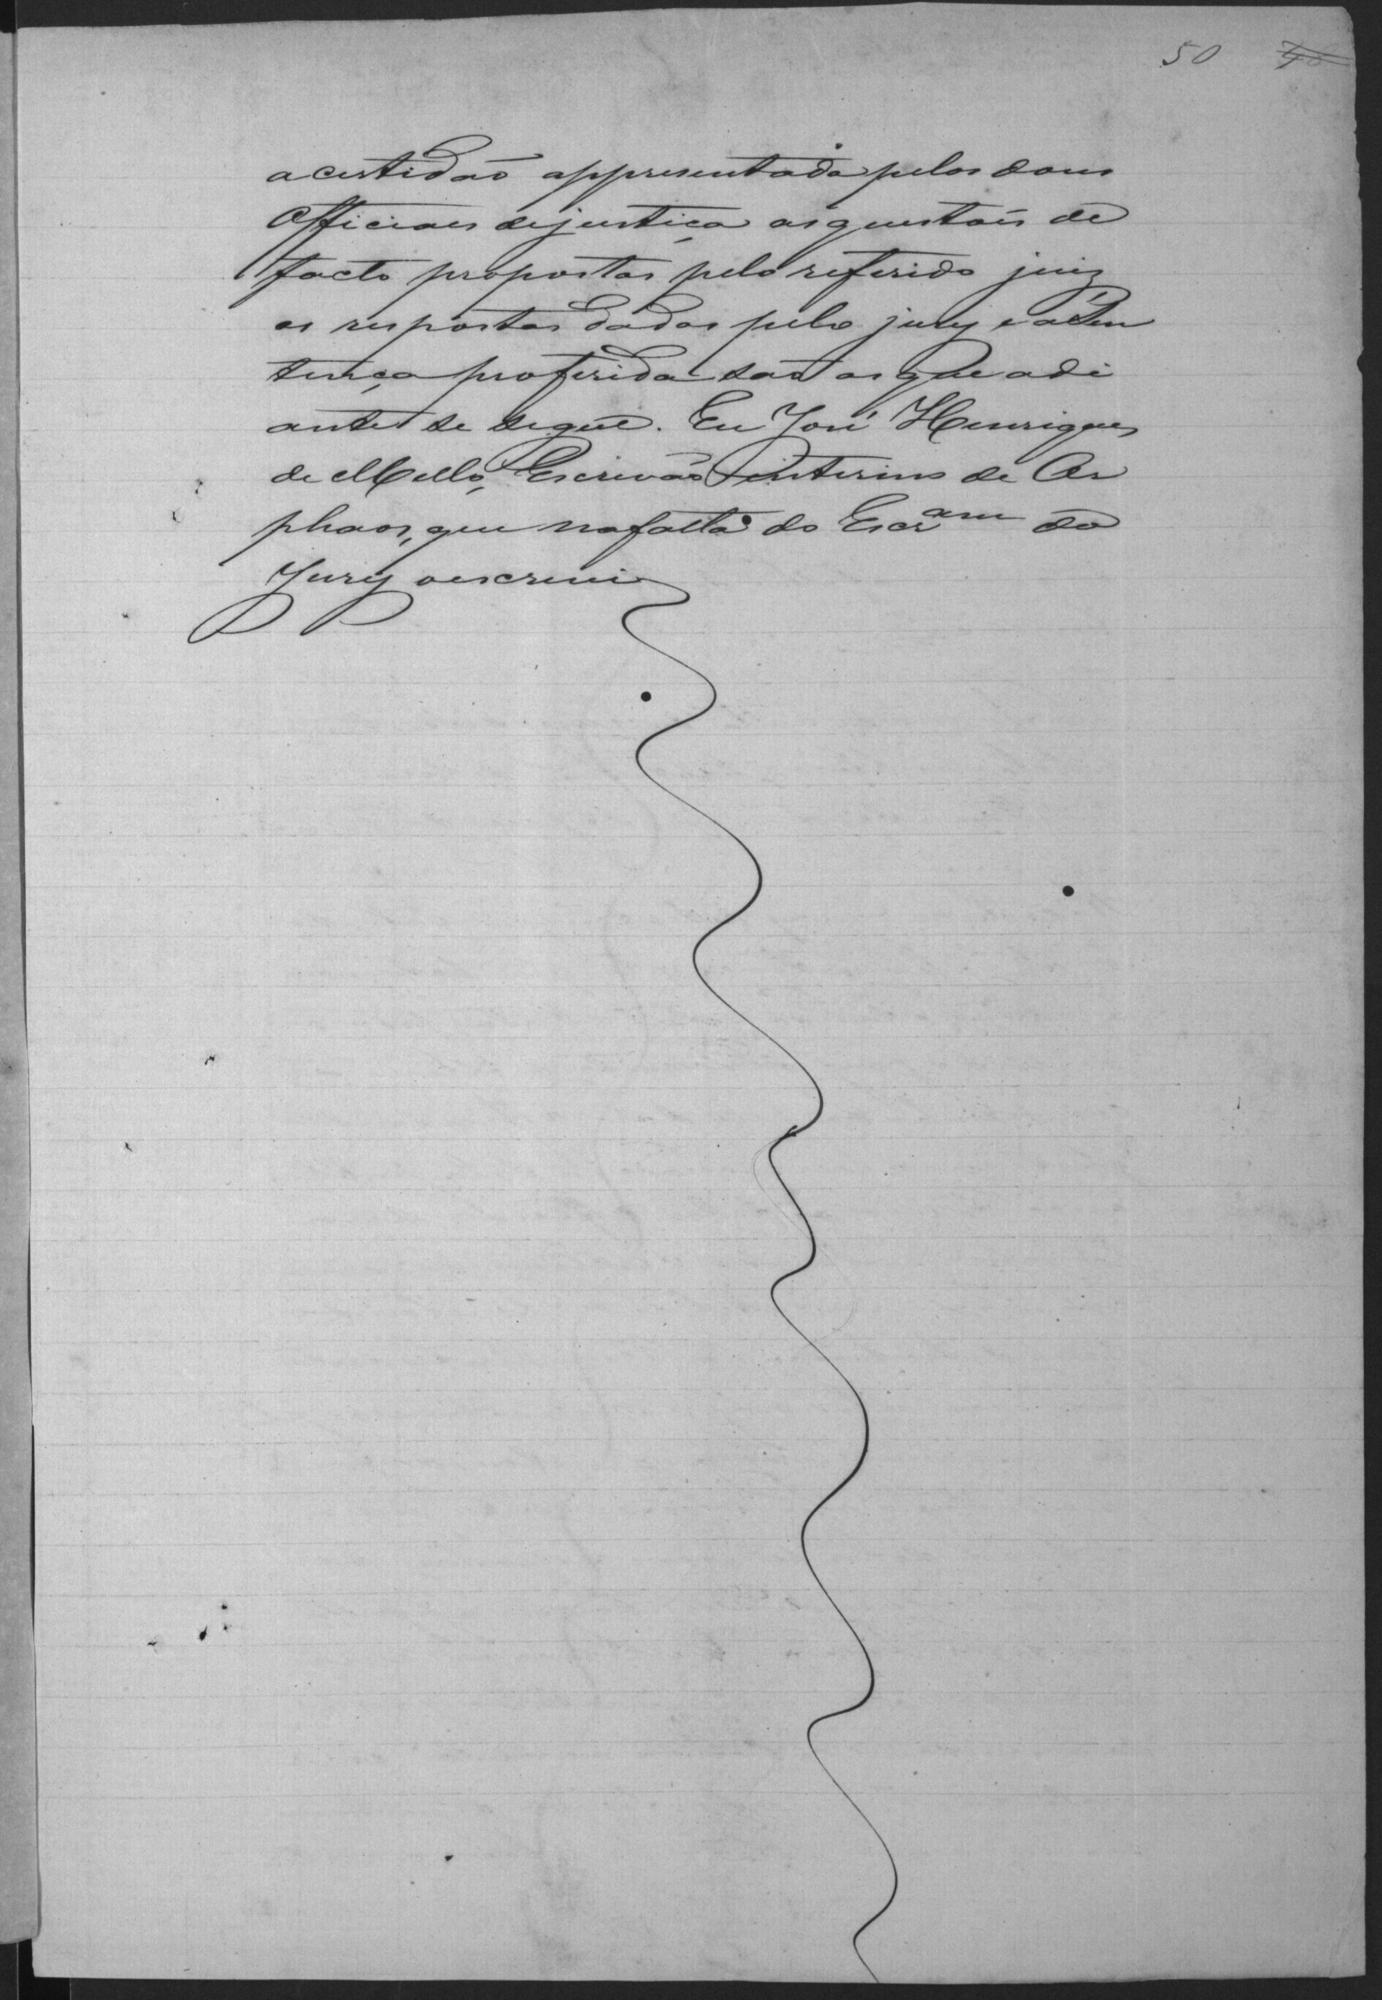 50
a certidaõ appresentada pelos dous
Officiaes de justiça as questoẽs de
facto propostas pelo referido juiz
as respostas dadas pelo jury e a Sen
tença proferida saõ as que adi
ante se segue. Eu José Henriques
de Mello, Escrivaõ interino de Or
phaõs, que na falta do Escram do
Jury o escrevi